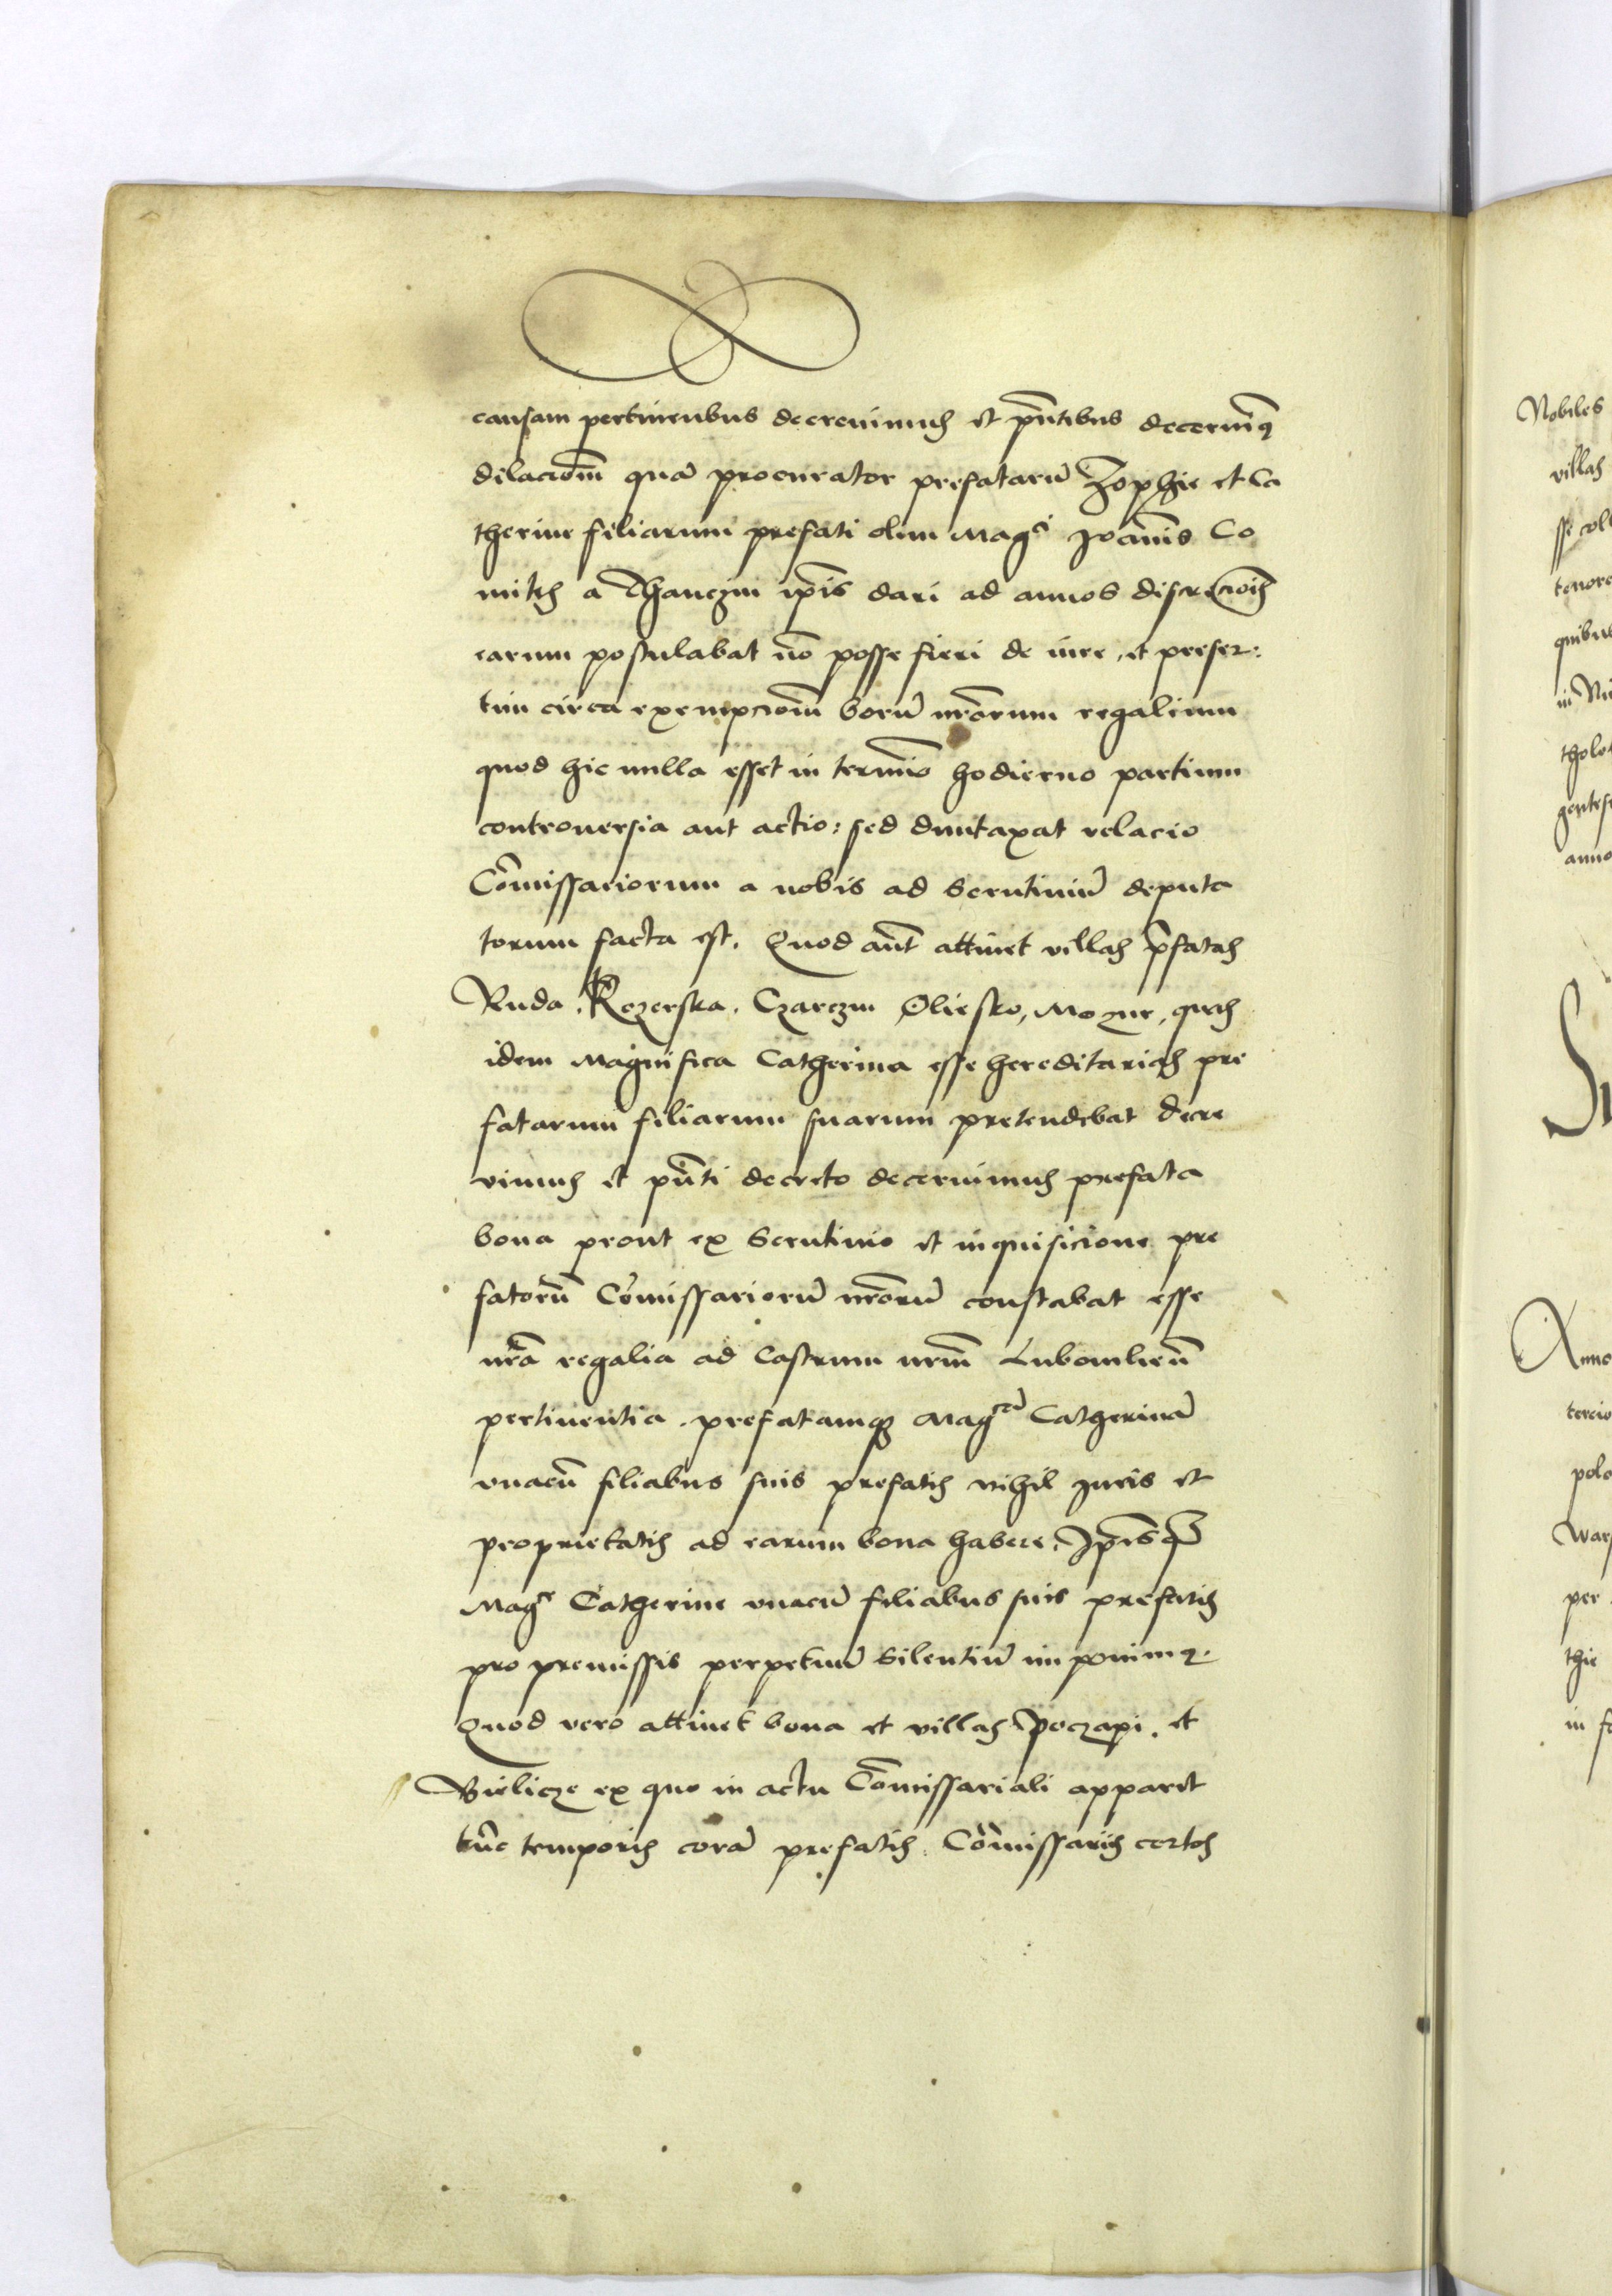 causam pertinentibus decrevimus et pn̄tibus decernimꝰ
dilaciōm quā procurator prefatarū Zophie et Ca
therine filiarum prefati olim Magci Joānis Co
mitis a Thanczin ip̄is dari ad annos discreciōis
earum postulabat nō posse fieri de iure, et preser:
tim circa exempciōm bonorū nr̄orum regalium
quod hic nulla esset in termīo hodierno partium
controuersia aut actio: sed duntaxat relacio
Cōmissariorum a nobis ad Scrutiniū deputa
torum facta est. Quod aūt attinet villas p̄fatas
Ruda, Kozerska, Czarczin Oliesko, Mozur, quas
idem Magnifica Catherina esse hereditarias pre
fatarum filiarum suarum pretendebat decre
vimus et pn̄ti decreto decernimus prefata
bona prout ex Scrutinio et inquisicione pre
fatorū Cōmissariorū nr̄orū constabat esse
nr̄a regalia ad Castrum nrm̄ Lubomlien̄
pertinentia, prefatamqȝ Magcā Catherinā
vnacū filiabus suis prefatis nihil Juris et
proprietatis ad earum bona habere, Ip̄isqȝ
Magce Catherine vnacū filiabus suis prefatis
pro premissis perpetuū Silentiū imponimꝰ.
Quod vero attinet bona et villas Poczapi, et
Bielicze ex quo in actu Cōmissariali apparet
tūc temporis corā prefatis Cōmissariis certos
Nobiles
villas
tenore
quibus
tholo
anno
Anno
tercio
polo
War
per
thie